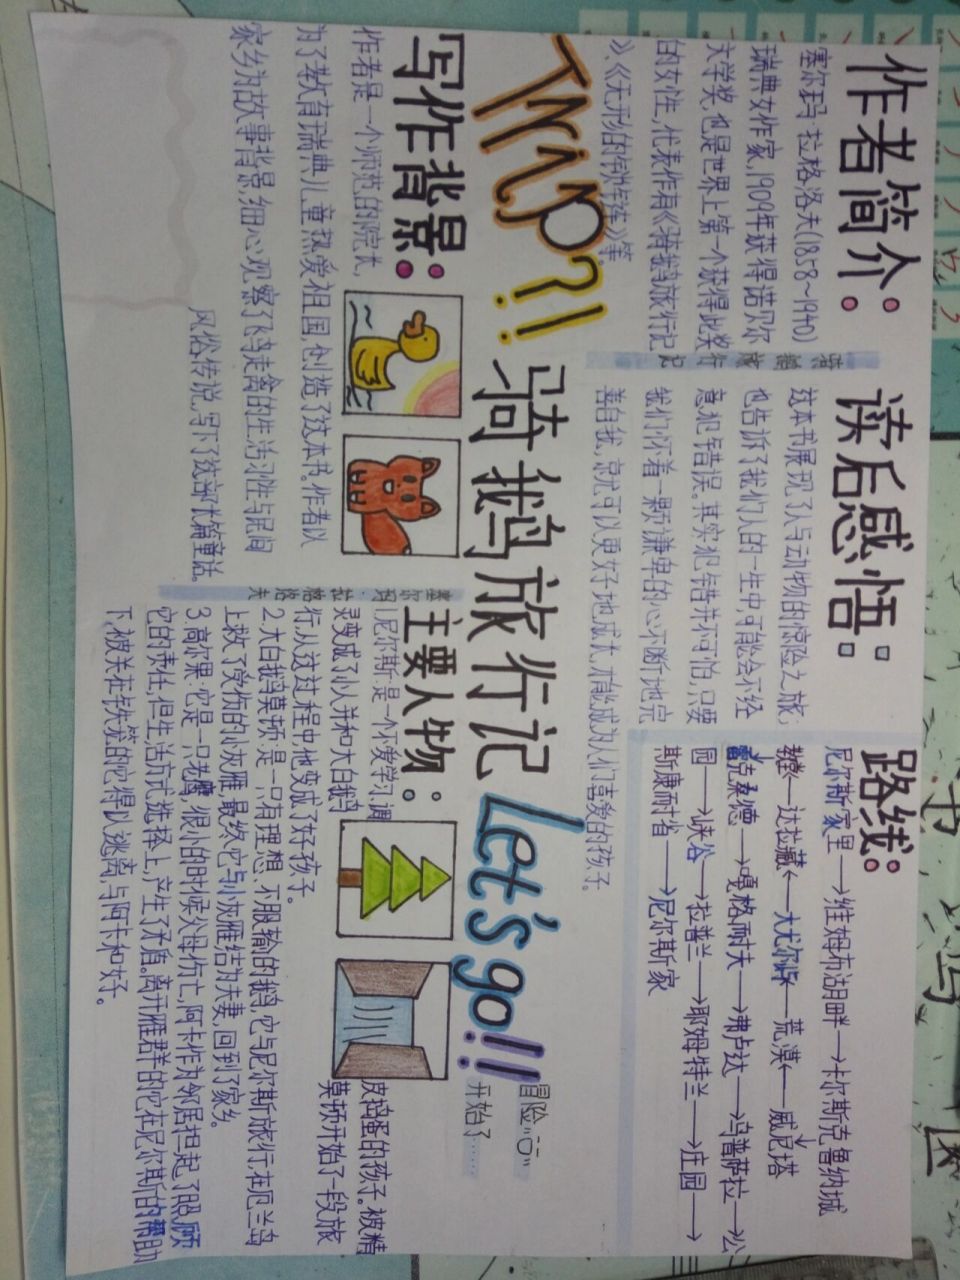 作者简介:
塞尔玛·拉格洛夫(1858~1940)
瑞典女作家,1909年获得诺贝尔
文学奖,也是世界上第一个获得此奖
的女性,代表作有《骑鹅旅行记
》、《无形的锁链》等.
骑鹅旅行记
读后感悟:
这本书展现了人与动物的惊险之旅;
也告诉了我们人的一生中,可能会不经
意犯错误。其实犯错并不可怕,只要
我们怀着一颗谦卑的心,不断地完
善自我,就可以更好地成长,才能成为人们喜爱的孩子.
路线:
尼尔斯家里→维姆布湖畔→卡尔斯克鲁纳城
威尼塔
荒漠
达拉藏
克桑德→嘎格耐夫→弗卢达→乌普萨拉→公
园→峡谷→拉普兰→耶姆特兰→庄园→
斯康耐省→尼尔斯家
Trip?!
骑鹅旅行记
Let's go!!
冒险记
开始了……
写作背景:
作者是一个师范的院长,
为了教育瑞典儿童热爱祖国,创造了这本书。作者以
家乡为故事背景,细心观察了飞鸟走禽的生活习性与民间
风俗传说,写下了这部长篇童话。
主要人物:
1.尼尔斯:是一个不爱学习,调
皮捣蛋的孩子。被精
灵变成了小人并和大白鹅
莫顿开始了一段旅
行,从这过程中他变成了好孩子.
2.大白鹅莫顿:是一只有理想、不服输的鹅,它与尼尔斯旅行,在厄兰岛
上救了受伤的小灰雁,最终它与小灰雁结为夫妻,回到了家乡。
3.高尔果:它是一只老鹰,很小的时候父母伤亡,阿卡作为邻居担起了照顾
它的责任,但生活方式选择上,产生了矛盾。离开雁群的它在尼尔斯的帮助
下,被关在铁笼的它得以逃离,与阿卡和好。